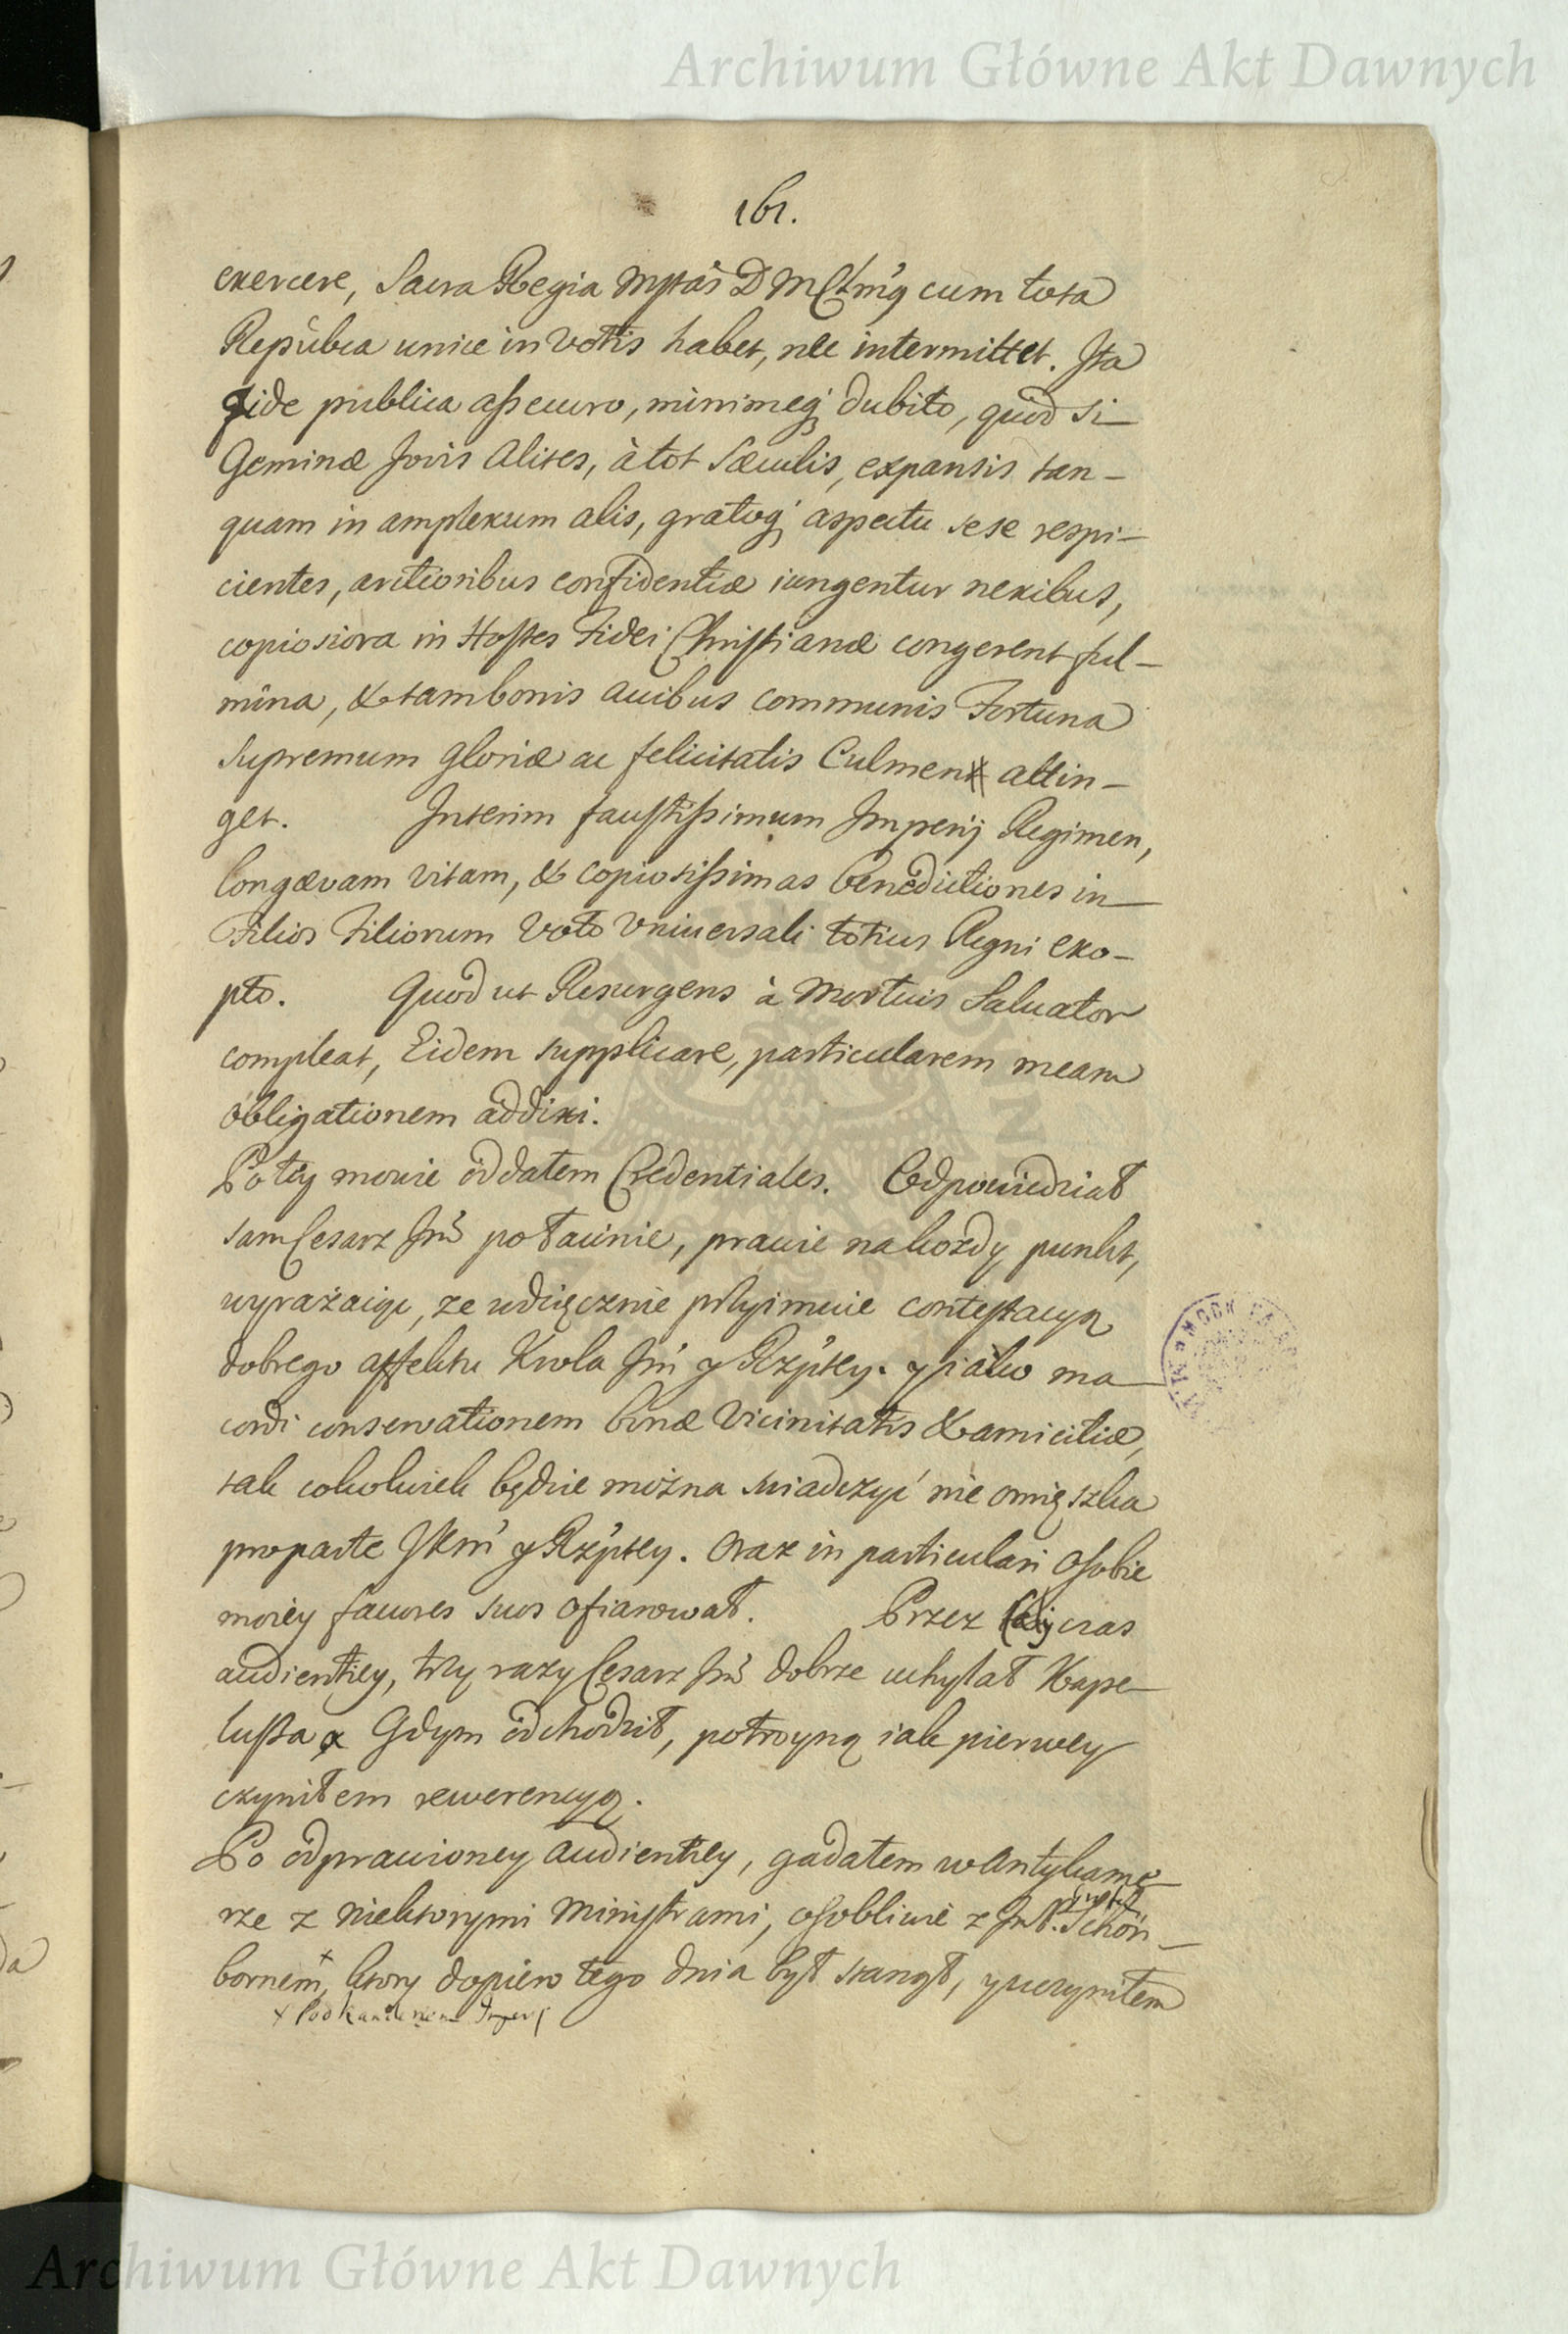 Archiwum Główne Akt Dawnych
161.
exercere, Sacra Regia Mṕtas D M Clm̃q cum tota
Repúbca unice in Votis habet, nec intermittet. Ita
fide publica aßecuro, minimeq; dubito, quòd si
Geminæ Jovis Alites, à tot Sæculis, expansis tan-
quam in amplexum alis, gratoq; aspectu sese respi-
cientes, arctioribus confidentiæ iungentur nexibus,
copiosiora in Hostes Fidei Christianæ congerent ful-
mina, & tam bonis avibus communis Fortuna
supremum gloriæ ac felicitatis Culmen attin-
get. Interim faustißimum Imperij Regimen,
longævam vitam, & copiosißimas benedictiones in
Filios Filiorum Voto Vniuersali totius Regni exo-
pto. Quod ut Resurgens à Mortuis Saluator
compleat, Eidem supplicare, particularem meam
obligationem addixi.
Po tey mowie oddałem Credentiales. Odpowiedział
sam Cesarz Jm̃ po łacinie, prawie na kozdy punkt,
wyrażaiąc, ze wdzięcznie przyimuie contestacyą
dobrego affektu Krola Jm̃ y Rzṕtey. y iáko ma
cordi conservationem bonæ Vicinitatis & amicitiæ,
tak cokolwiek będzie można swiadczyć nie omięszka
pro parte JKm̃ y Rzṕtey. Oraz in particulari osobie
moiey favores suos ofiarował. Przez czas
audientiey, trzy razy Cesarz Jm̃ dobrze uchylał Kape-
lußa Gdym odchodził, potroyną iak pierwey
czyniłem rewerencyą.
Po odprawioney audientiey, gadałem w Antykame-
rze z niektorymi Ministrami, osobliwie z Schön-
bornem, ktory dopiero tego dnia był stanął, y uczyniłem
x Podkanclerzem Imperij
Archiwum Główne Akt Dawnych